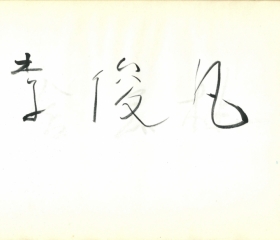 李俊凡